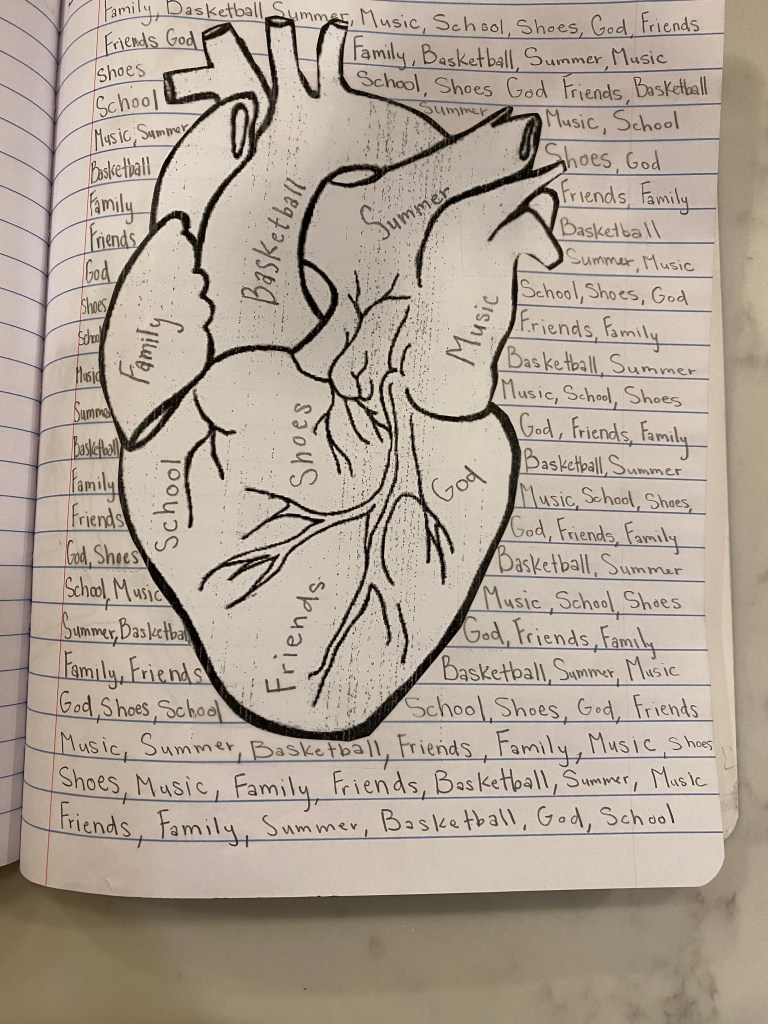 Family, Basketball Summer, Music, School, Shoes, God, Friends
Friends God
Family, Basketball, Summer, Music
Shoes
School, Shoes God Friends, Basketball
School
Summer
Music, School
Music, Summer
Shoes, God
Basketball
Friends, Family
Family
Basketball
Friends
Summer, Music
God
School, Shoes, God
Shoes
Friends, Family
School
Basketball, Summer
Music
Music, School, Shoes
Summe
God, Friends, Family
Basketball
Basketball, Summer
Family
Music, School, Shoes,
Friends
God, Friends, Family
God, Shoes
Basketball, Summer
School, Music
Music, School, Shoes
Summer, Basketball
God, Friends, Family
Family, Friends
Basketball, Summer, Music
God, Shoes, School
School, Shoes, God, Friends
Music, Summer, Basketball, Friends, Family, Music, Shoes
Shoes, Music, Family, Friends, Basketball, Summer, Music
Friends, Family, Summer, Basketball, God, School
Basketball
Summer
Family
Music
School
Shoes
God
Friends